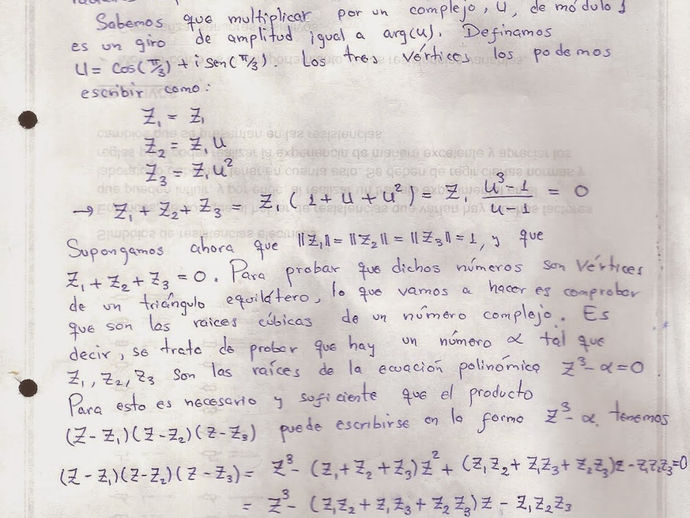 Sabemos que multiplicar por un complejo, u, de módulo 1
es un giro de amplitud igual a arg(u). Definamos
u = cos(π/3) + i sen(π/3). Los tres vértices los podemos
escribir como:
Z₁ = Z₁
Z₂ = Z₁u
Z₃ = Z₁u²
→ Z₁ + Z₂ + Z₃ = Z₁ (1 + u + u²) = Z₁ (u³-1)/(u-1) = 0
Supongamos ahora que ||Z₁|| = ||Z₂|| = ||Z₃|| = 1, y que
Z₁ + Z₂ + Z₃ = 0. Para probar que dichos números son vértices
de un triángulo equilátero, lo que vamos a hacer es comprobar
que son las raices cúbicas de un número complejo. Es
decir, se trata de probar que hay un número α tal que
Z₁, Z₂, Z₃ son las raíces de la ecuación polinómica Z³-α=0
Para esto es necesario y suficiente que el producto
(Z-Z₁)(Z-Z₂)(Z-Z₃) puede escribirse en la forma Z³-α, tenemos
(Z-Z₁)(Z-Z₂)(Z-Z₃) = Z³ - (Z₁+Z₂+Z₃)Z² + (Z₁Z₂+Z₁Z₃+Z₂Z₃)Z - Z₁Z₂Z₃=0
= Z³ - (Z₁Z₂ + Z₁Z₃ + Z₂Z₃)Z - Z₁Z₂Z₃